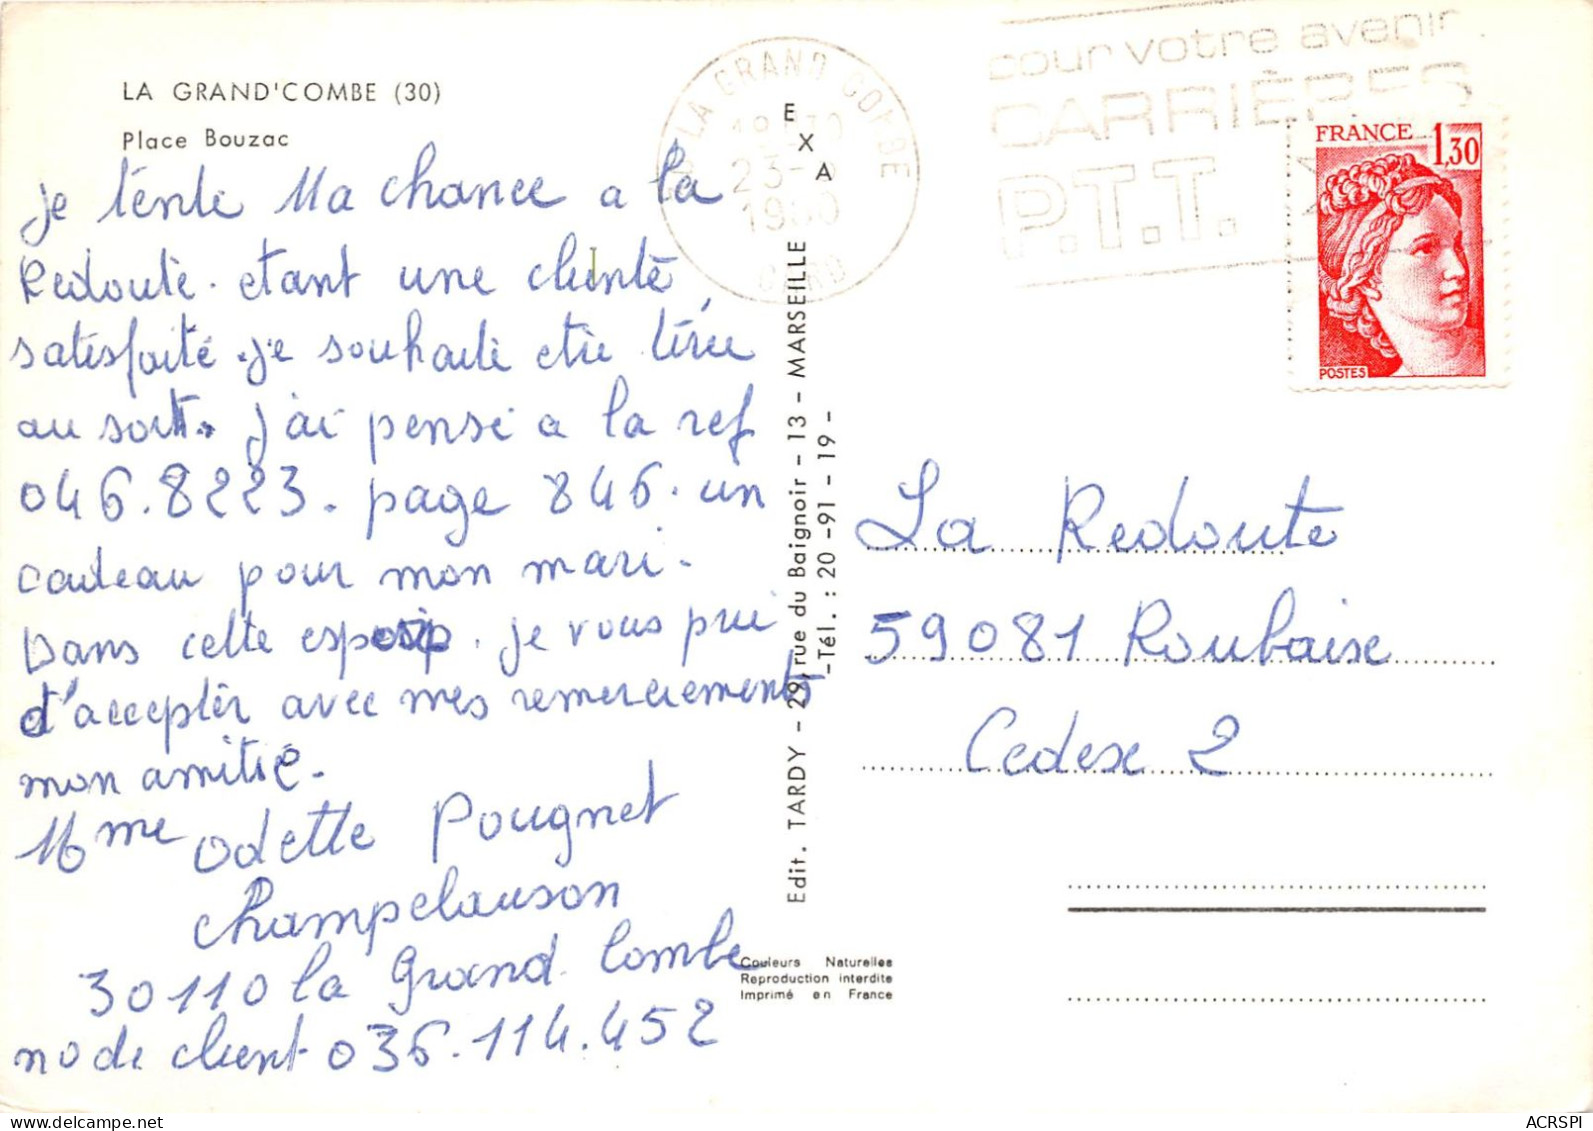 LA GRAND'COMBE (30)
Place Bouzac
je tente Ma chance a la
Redoute. etant une cliente
satisfaite. je souhaite etre tirée
au sort. j'ai pensé a la ref
046.8223. page 846. un
cadeau pour mon mari.
Dans cette espoir. je vous prie
d'accepter avec mes remerciements
mon amitié.
Mme Odette Pougnet
Champclauson
30110 la Grand Combe
no de client 036.114.452
LA GRAND COMBE
18 30
23-
1980
GARD
pour votre avenir
CARRIÈRES
P.T.T.
FRANCE 1,30
POSTES
EXA
Edit. TARDY - 29, rue du Baignoir - 13 - MARSEILLE
-Tél. : 20-91-19-
La Redoute
59081 Roubaix
Cedex 2
Couleurs Naturelles
Reproduction interdite
Imprimé en France
ACRSPI